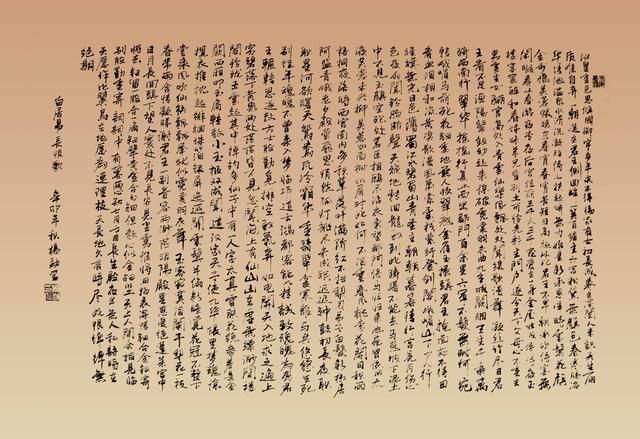 漢皇重色思傾國御宇多年求不得楊家有女初長成養在深閨人未識天生麗
質難自棄一朝選在君王側回眸一笑百媚生六宮粉黛無顏色春寒賜浴
華清池溫泉水滑洗凝脂侍兒扶起嬌無力始是新承恩澤時雲鬢花顏
金步搖芙蓉帳暖度春宵春宵苦短日高起從此君王不早朝承歡侍宴無
閑暇春從春遊夜專夜後宮佳麗三千人三千寵愛在一身金屋妝成嬌侍夜玉
樓宴罷醉和春姊妹弟兄皆列土可憐光彩生門戶遂令天下父母心不重生
男重生女驪宮高處入青雲仙樂風飄處處聞緩歌慢舞凝絲竹盡日君
王看不足漁陽鼙鼓動地來驚破霓裳羽衣曲九重城闕煙塵生千乘萬
騎西南行翠華搖搖行復止西出都門百餘里六軍不發無奈何宛
轉蛾眉馬前死花鈿委地無人收翠翹金雀玉搔頭君王掩面救不得回
看血淚相和流黃埃散漫風蕭索雲棧縈紆登劍閣峨嵋山下少人行
旌旗無光日色薄蜀江水碧蜀山青聖主朝朝暮暮情行宮見月傷心
色夜雨聞鈴腸斷聲天旋地轉回龍馭到此躊躇不能去馬嵬坡下泥土
中不見玉顏空死處君臣相顧盡沾衣東望都門信馬歸歸來池苑皆依舊太
液芙蓉未央柳芙蓉如面柳如眉對此如何不淚垂春風桃李花開日秋雨
梧桐葉落時西宮南內多秋草落葉滿階紅不掃梨園弟子白髮新椒房
阿監青娥老夕殿螢飛思悄然孤燈挑盡未成眠遲遲鐘鼓初長夜耿
耿星河欲曙天鴛鴦瓦冷霜華重翡翠衾寒誰與共悠悠生死
別經年魂魄不曾來入夢臨邛道士鴻都客能以精誠致魂魄為感君
王輾轉思遂教方士殷勤覓排空馭氣奔如電升天入地求之遍上
窮碧落下黃泉兩處茫茫皆不見忽聞海上有仙山山在虛無縹緲間樓
閣玲瓏五雲起其中綽約多仙子中有一人字太真雪膚花貌參差是金
闕西廂叩玉扃轉教小玉報雙成聞道漢家天子使九華帳里夢魂驚
攬衣推枕起徘徊珠箔銀屏迤邐開雲鬢半偏新睡覺花冠不整下
堂來風吹仙袂飄飄舉猶似霓裳羽衣舞玉容寂寞淚闌干梨花一枝
春帶雨含情凝睇謝君王一別音容兩渺茫昭陽殿里恩愛絕蓬萊宮中
日月長回頭下望人寰處不見長安見塵霧惟將舊物表深情鈿合金釵寄
將去釵留一股合一扇釵擘黃金合分鈿但教心似金鈿堅天上人間會相見臨
別殷勤重寄詞詞中有誓兩心知七月七日長生殿夜半無人私語時在
天願作比翼鳥在地願為連理枝天長地久有時盡此恨綿綿無
絕期
白居易長恨歌
辛卯年秋楊